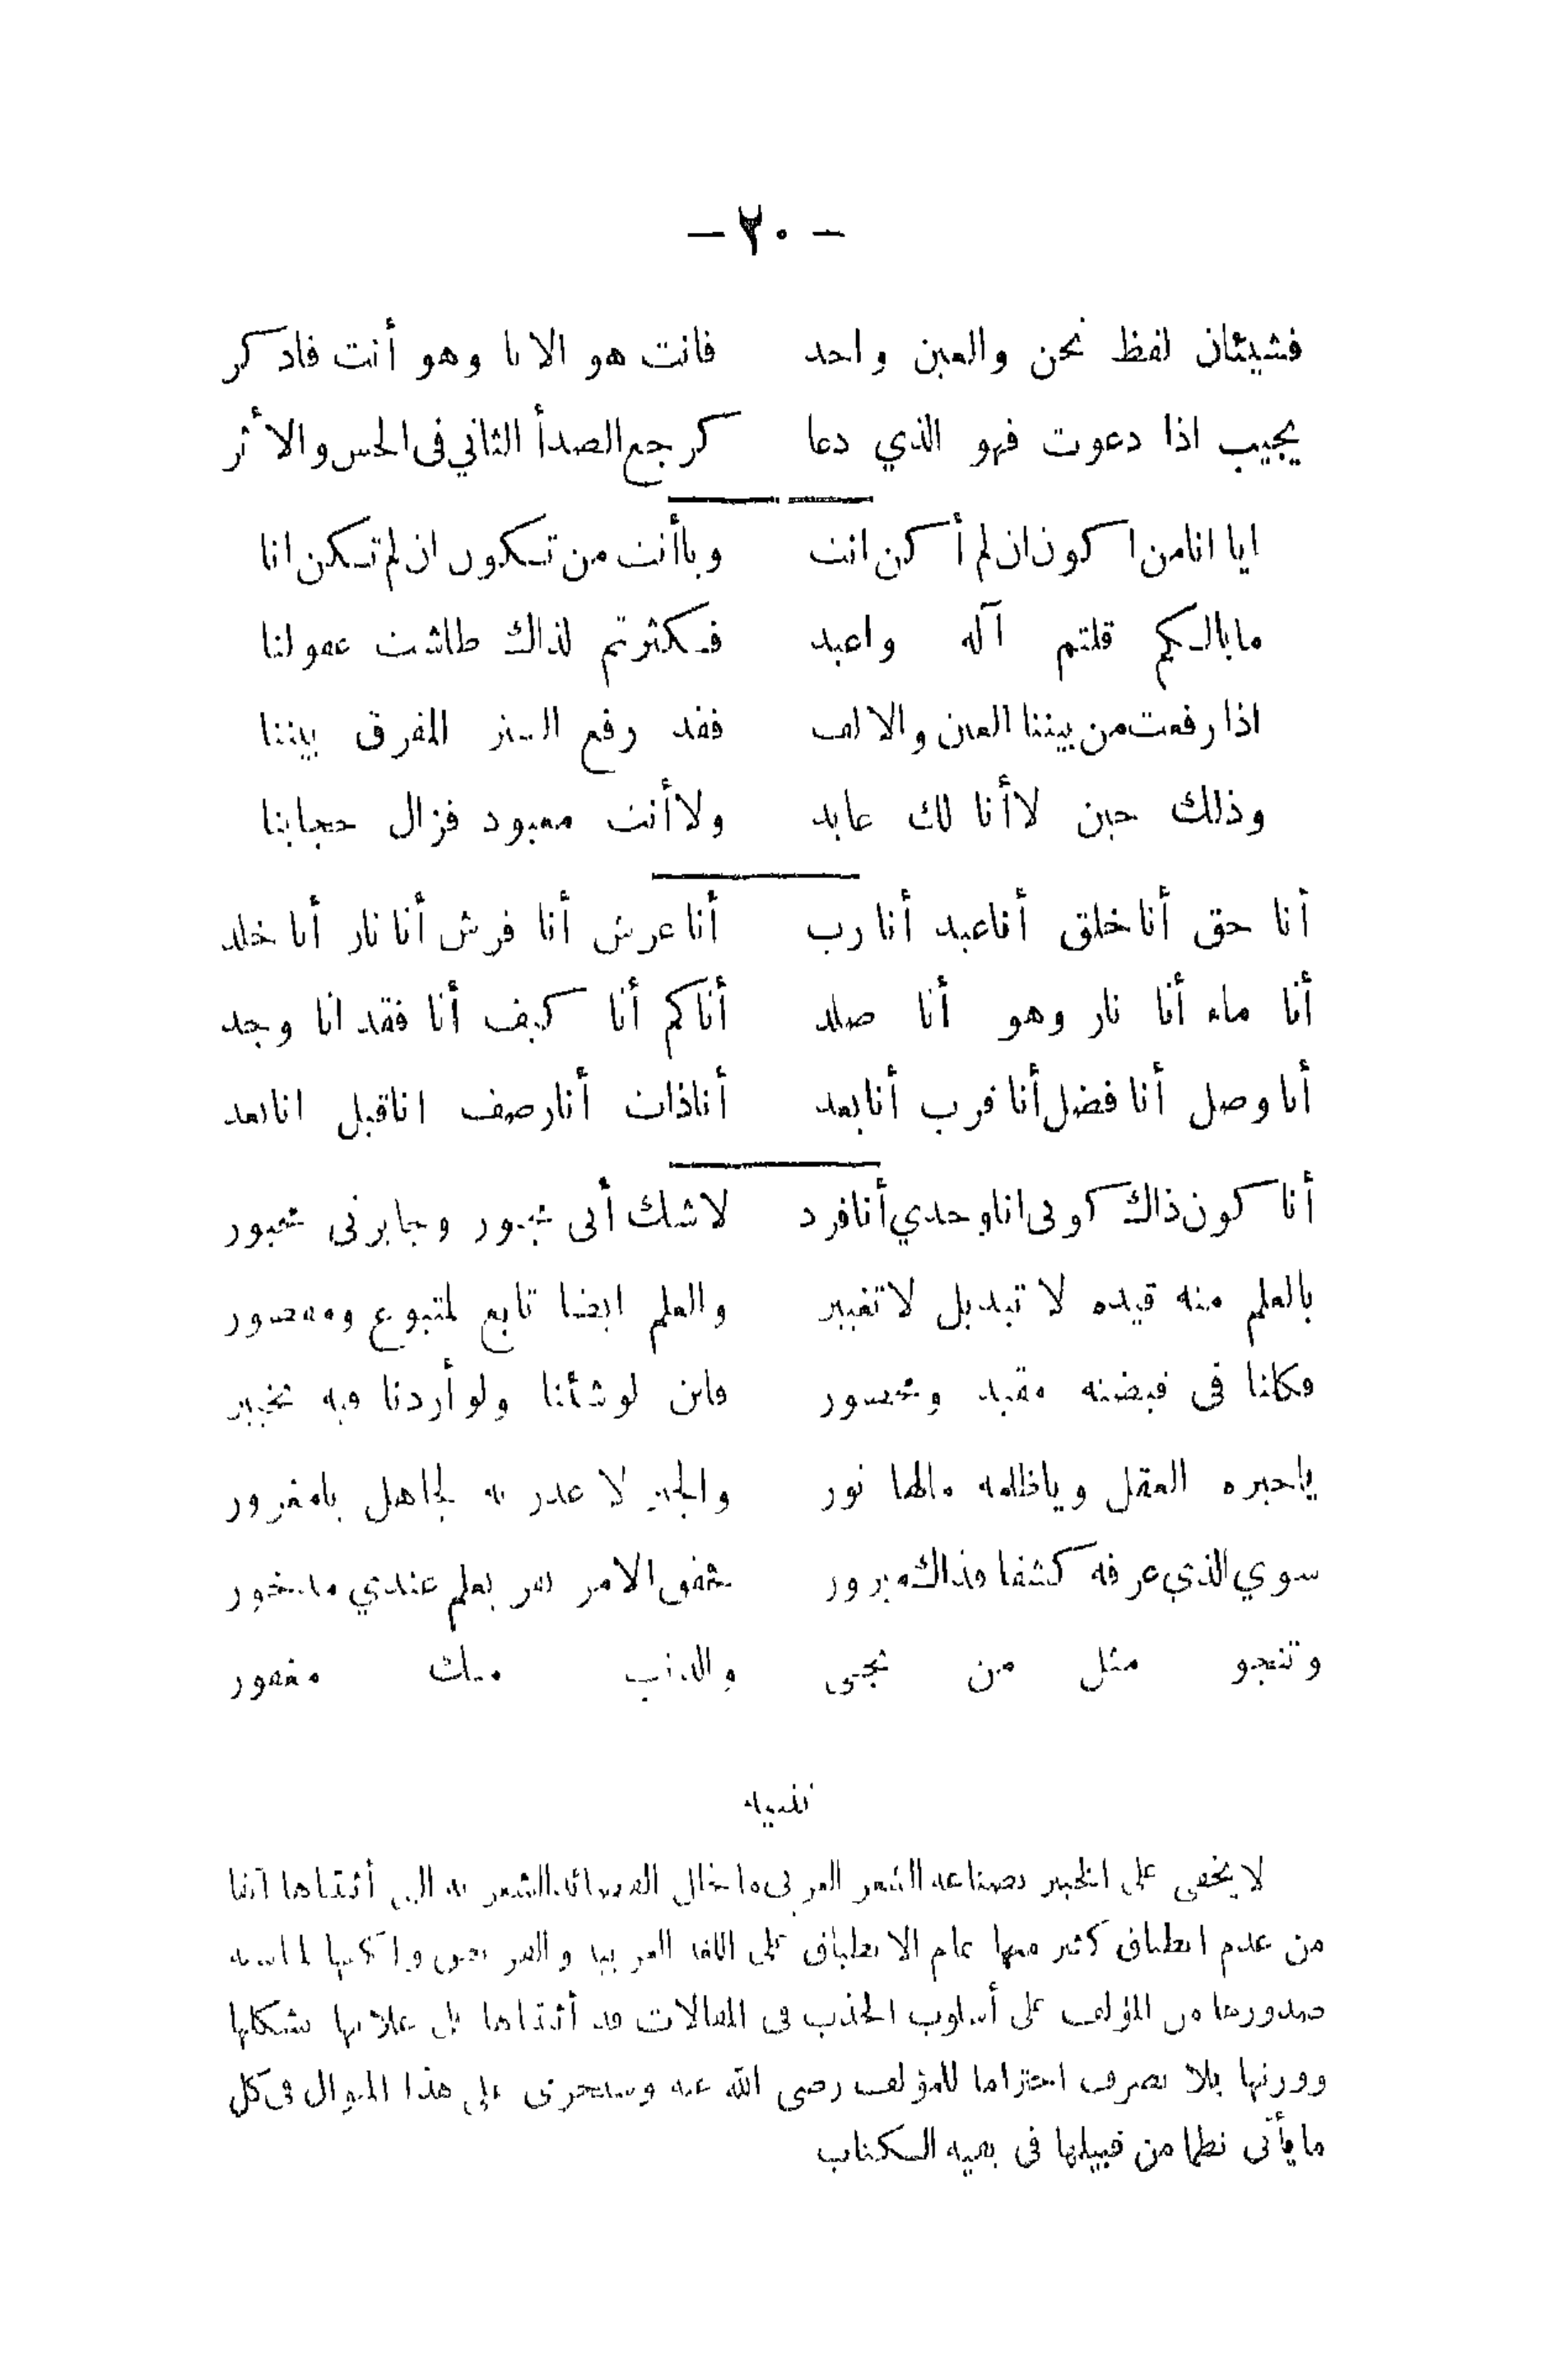 - ٢٠ -
فشيئان لفظ نحن والعين واحد فانت هو الانا وهو أنت فادكر
يجيب اذا دعوت فهو الذي دعا كرجع الصدأ الثاني في الحس والأثر
ايا انا من اكون ان لم أكن انت ويا أنت من تكون ان لم تكن انا
ما بالكم قلتم آله واعبد فكثرتم لذاك طاشت عقولنا
اذا رفعت من بيننا العين والالف فقد رفع الستر المفرق بيننا
وذلك حين لا أنا لك عابد ولا أنت معبود فزال حجابنا
أنا حق أنا خلق أنا عبد أنا رب أنا عرش أنا فرش أنا نار أنا خلد
أنا ماء أنا نار وهو أنا صلد أنا كم أنا كيف أنا فقد انا وجد
أنا وصل أنا فضل أنا قرب أنا بعد أنا ذات أنا وصف انا قبل انا بعد
أنا كون ذاك كوني انا وحدي أنا فرد لا شك أني مجبور وجابرني مجبور
بالعلم منه قيده لا تبديل لا تغيير والعلم ايضا تابع لمتبوع ومقصور
فكلنا في قبضته مقيد ومحصور فاين لو شأنا ولو أردنا فيه تخيير
يا حيرة العقل ويا ظلمة مالها نور والجبر لا عذر به لجاهل يا مغرور
سوي الذي عرفه كشفا فذاك مبرور فحقق الامر بعلم عندي
وتنجو مثل من نجى والذنب منك مغفور
تنبيه
لا يخفى على الخبير بصناعة الشعر العربي ما خلال القصائد الشعرية التي أثبتناها آنفا
من عدم انطباق كثير منها تمام الانطباق على اللغة العربية والعروض
صدورها من المؤلف على أسلوب الجذب في المقالات قد أثبتناها على علاتها بشكلها
ووزنها بلا تصرف احتراما للمؤلف رضى الله عنه وسنجرى على هذا المنوال في كل
ما يأتى نظما من قبيلها في بقية الكتاب